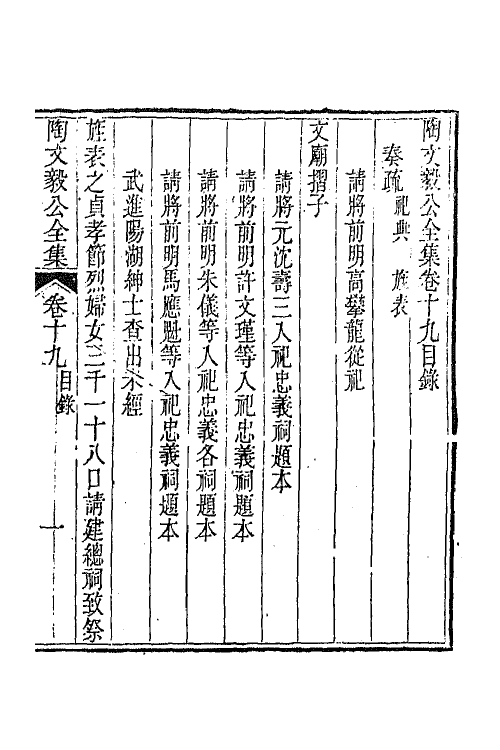 陶文毅公全集卷十九目錄
奏疏 祀典 旌表
請將前明高攀龍從祀
文廟摺子
請將元沈壽三入祀忠義祠題本
請將前明許文瑾等入祀忠義祠題本
請將前明朱儀等入祀忠義各祠題本
請將前明馬應魁等入祀忠義祠題本
武進陽湖紳士查出未經
旌表之貞孝節烈婦女三千一十八口請建總祠致祭
陶文毅公全集 卷十九 目錄 一